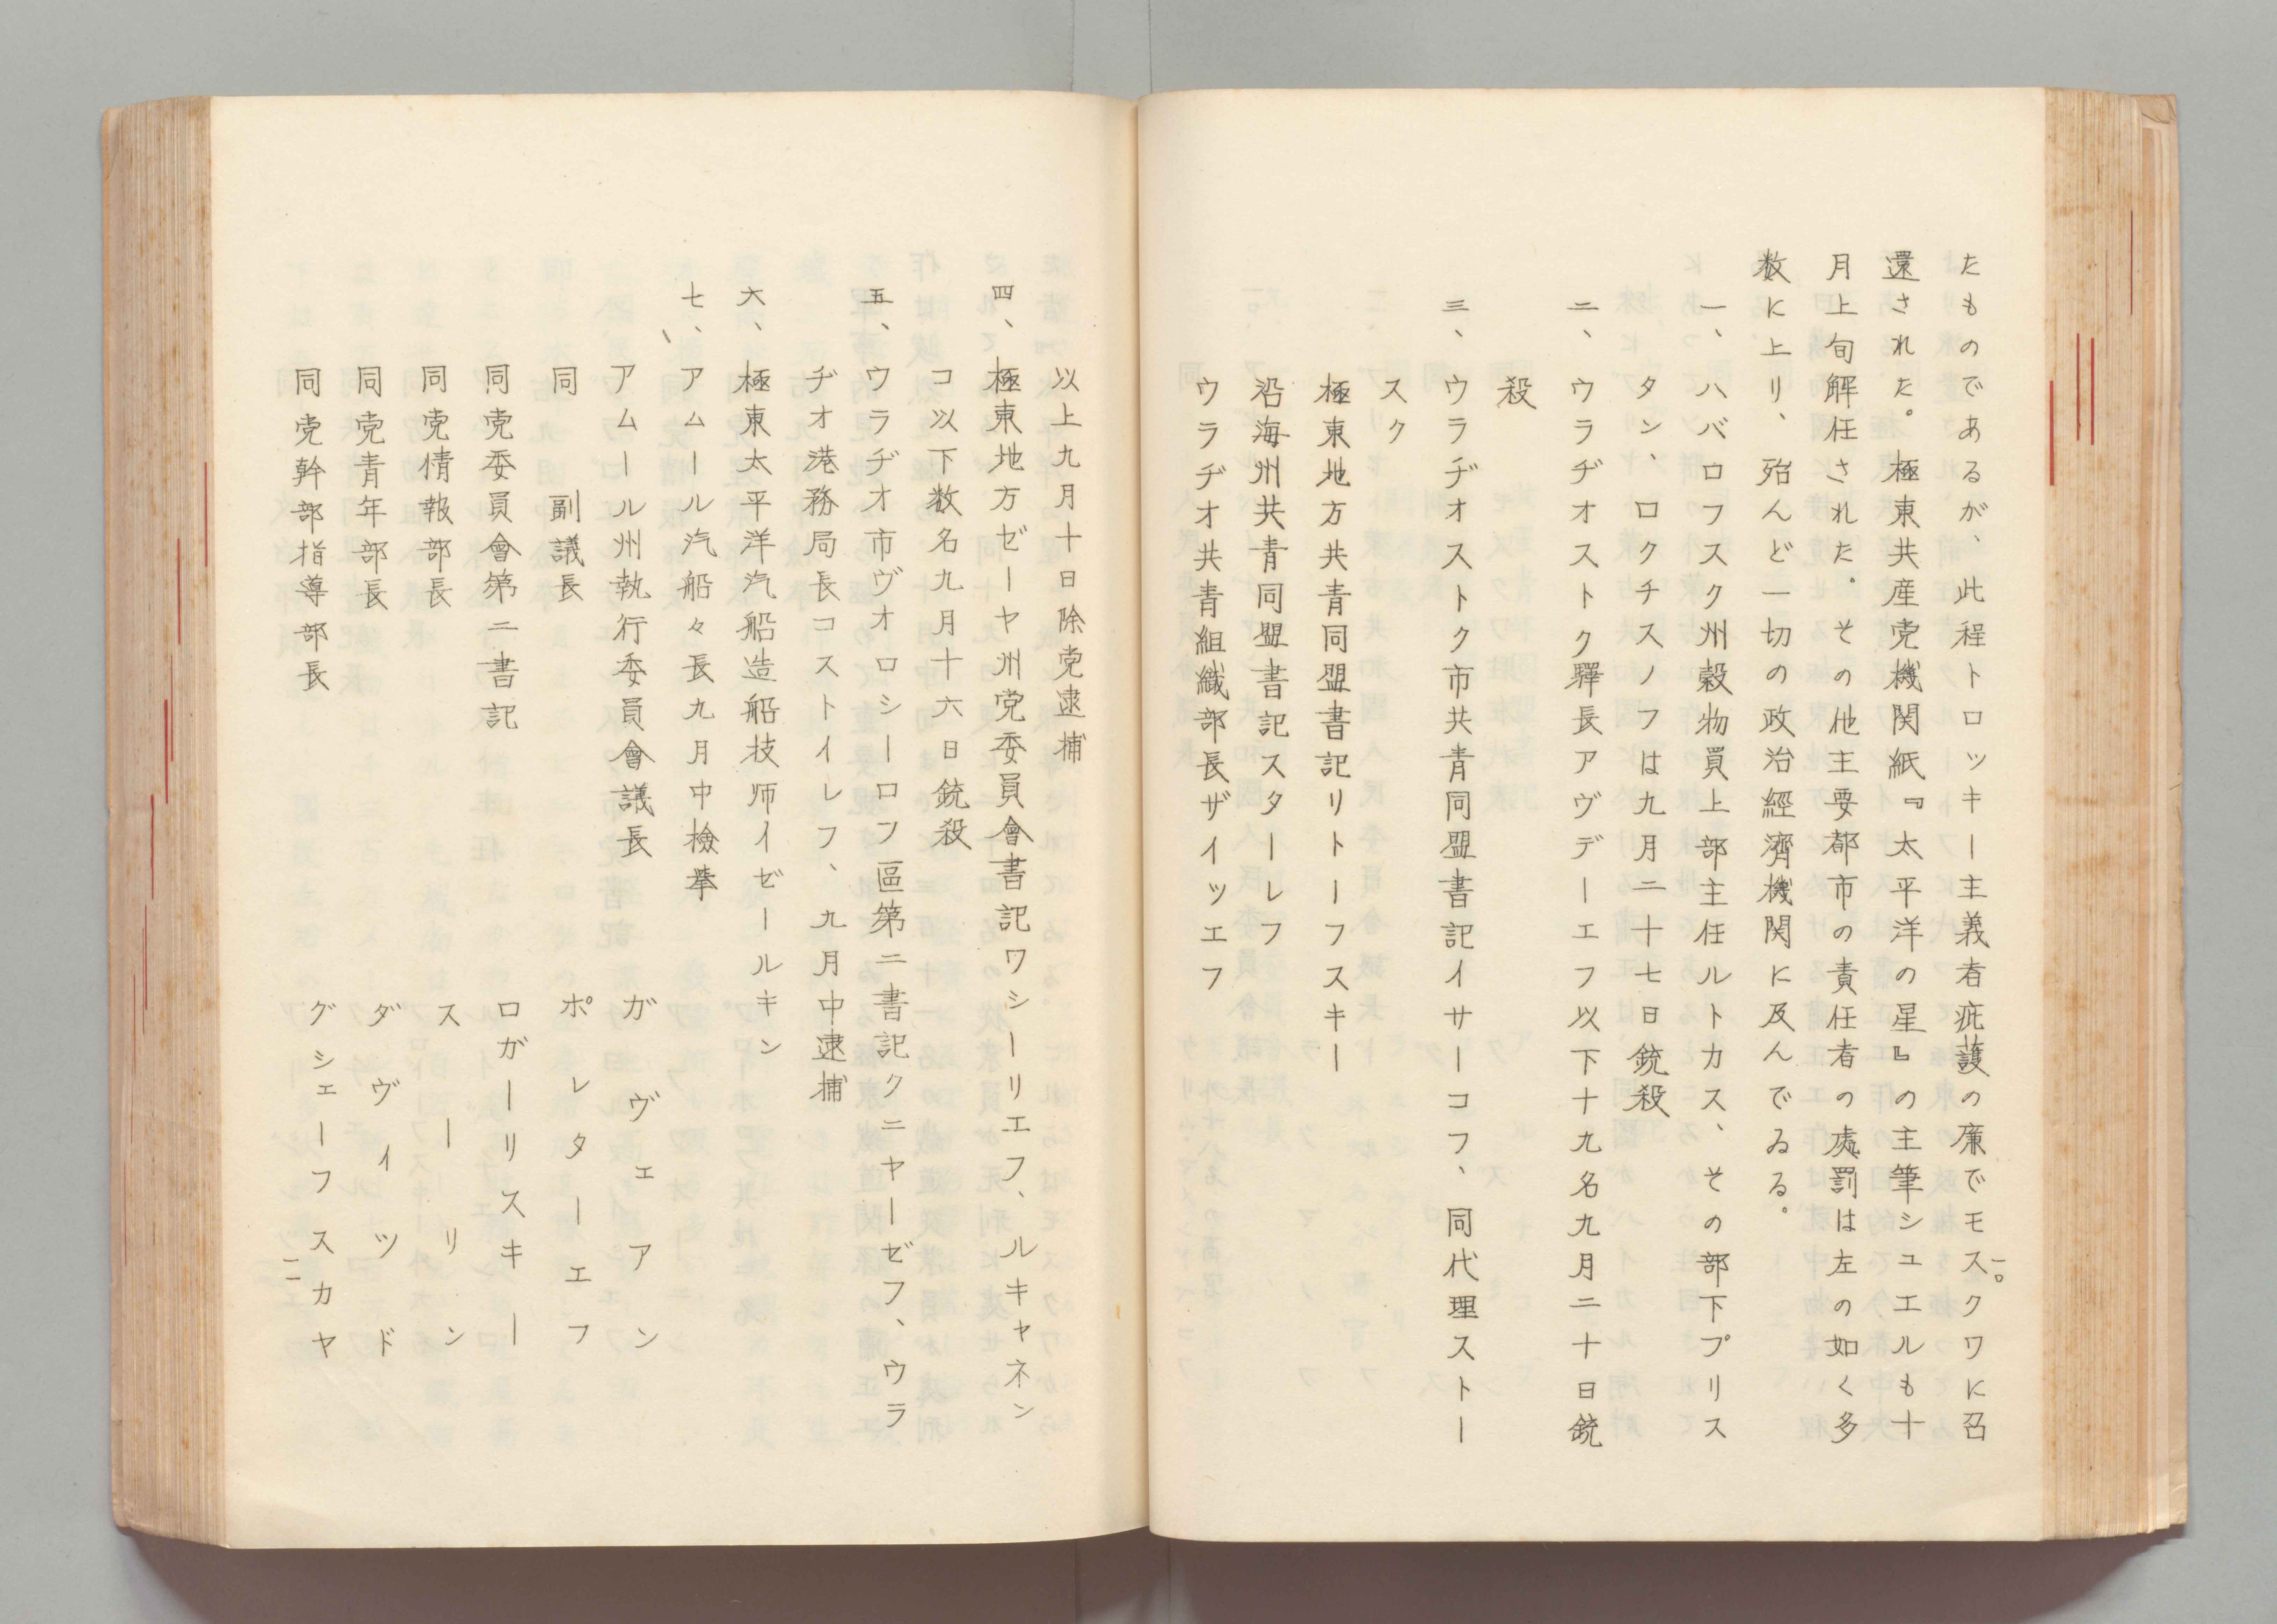 たものであるが、此程トロッキー主義者庇護の廉でモスクワに召
還された。極東共産党機関紙『太平洋の星』の主筆シュエルも十
月上旬解任された。その他主要都市の責任者の處罰は左の如く多
数に上り、殆んど一切の政治經濟機関に及んでゐる。
一、ハバロフスク州穀物貿上部主任ルトカス、その部下プリス
タン、ロクチスノフは九月二十七日銃殺
二、ウラヂオストク驛長アヴデーエフ以下十九名九月二十日銃
殺
三、ウラヂオストク市共青同盟書記イサーコフ、同代理ストー
スク
極東地方共青同盟書記リトーフスキー
沿海州共青同盟書記スターレフ
ウラヂオ共青組織部長ザイツエフ
一〇
以上九月十日除党逮捕
四、極東地方ゼーヤ州党委員會書記ワシーリエフ、ルキャネン
コ以下数名九月十六日銃殺
五、ウラヂオ市ヴオロシーロフ區第二書記クニヤーゼフ、ウラ
ヂオ港務局長コストイレフ、九月中逮捕
六、極東太平洋汽船造船技师イゼールキン
七、アムール汽船々長九月中檢挙
アムール州執行委員會議長 ガヴェアン
同 副議長 ポレターエフ
同党委員會第二書記 ロガーリスキー
同党情報部長 スーリン
同党青年部長 ダヴイツド
同党幹部指導部長 グシェーフスカヤ
一一